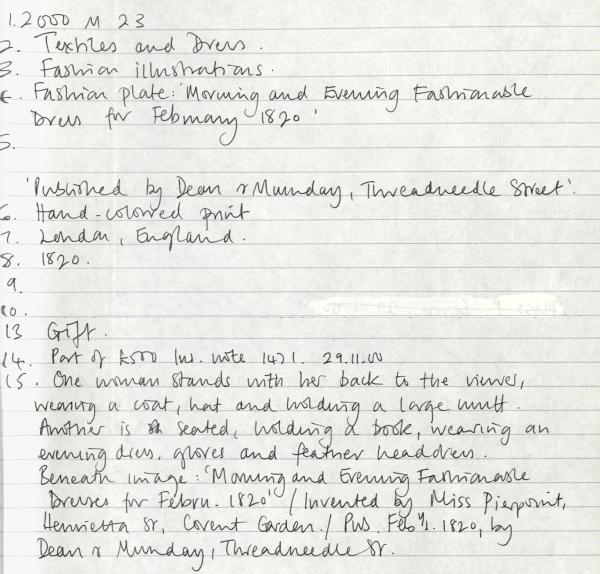 1. 2000 M 23
2. Textiles and Dress.
3. Fashion illustrations.
4. Fashion plate: 'Morning and Evening Fashionable
Dress for February 1820'
5.
'Published by Dean & Munday, Threadneedle Street'.
6. Hand-coloured print
7. London, England.
8. 1820.
9.
10.
13 Gift.
14. Part of £500 Ins. note 1471. 29.11.00
15. One woman stands with her back to the viewer,
wearing a coat, hat and holding a large muff.
Another is seated, holding a book, wearing an
evening dress, gloves and feather headdress.
Beneath image: 'Morning and Evening Fashionable
Dresses for Febru. 1820' / Invented by Miss Pierpoint,
Henrietta St, Covent Garden. / Pub. Feb y 1. 1820, by
Dean & Munday, Threadneedle St.